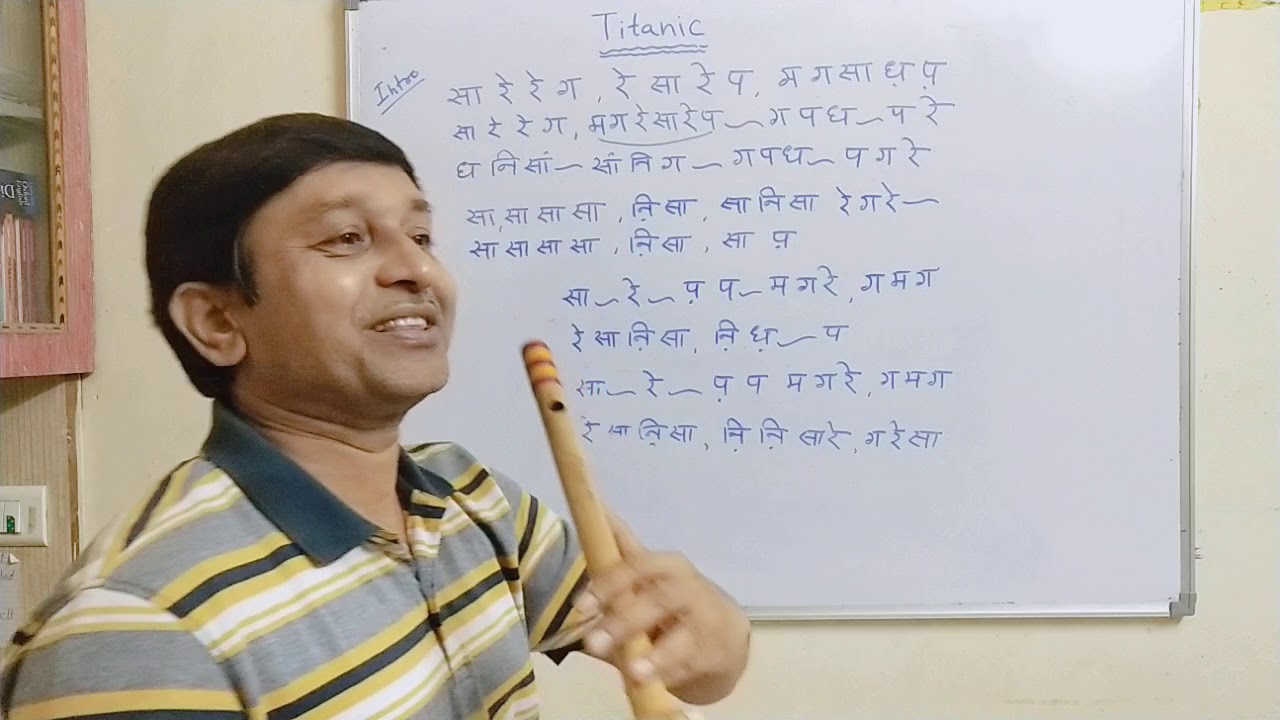 Titanic
Intro
सा रे रे ग , रे सा रे प , म ग सा ध़ प़
सा रे रे ग , म ग रे सा रे प ~ ग प ध ~ प रे
ध नि सां ~ सां नि ग ~ ग प ध ~ प ग रे
सा , सा सा सा , ऩि सा , सा नि सा रे ग रे ~
सा सा सा सा , ऩि सा , सा प़
सा ~ रे ~ प़ प ~ म ग रे , ग म ग
रे सा ऩि सा , ऩि ध़ ~ प
सा ~ रे ~ प़ प म ग रे , ग म ग
रे सा ऩि सा , ऩि ऩि सा रे , ग रे सा